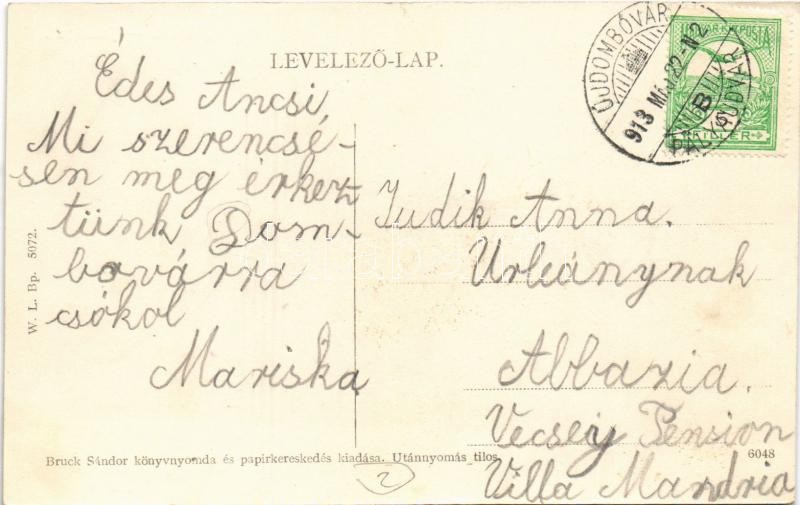 LEVELEZŐ-LAP.
ÚJDOMBÓVÁR
913 MÁJ 22-N2
B
PÁLYAUDVAR
MAGYAR KIR. POSTA
FILLÉR
Édes Ancsi
Mi szerencsé-
sen meg érkez
tünk Dom-
bovárra
csókol
Mariska
Judik Anna.
Urleánynak
Abbazia.
Vecsey Pension
Villa Mandria
W. L. Bp. 5072.
Bruck Sándor könyvnyomda és papirkereskedés kiadása. Utánnyomás tilos.
6048
2